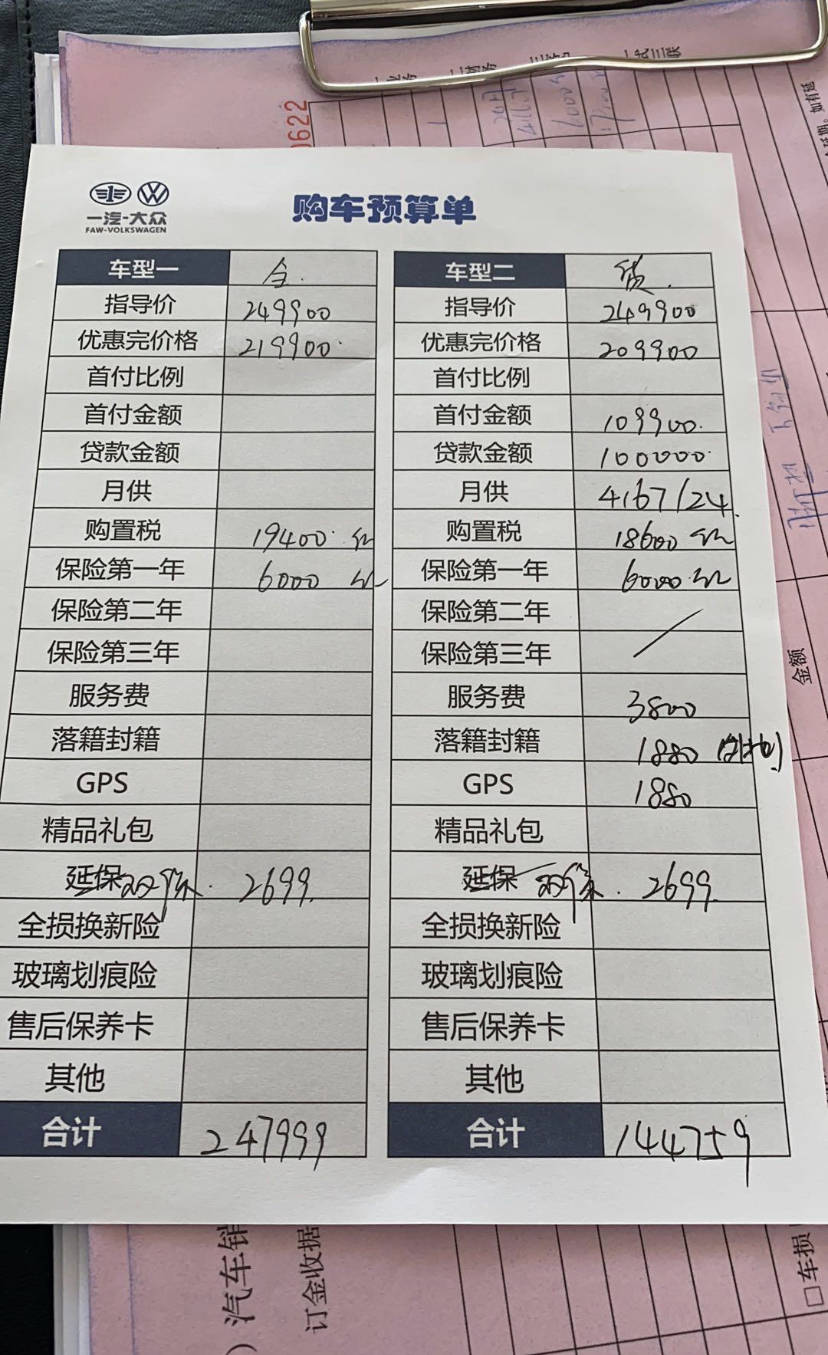 0622
一汽-大众
FAW-VOLKSWAGEN
购车预算单
车型一 全.
指导价 249900
优惠完价格 219900.
首付比例
首付金额
贷款金额
月供
购置税 19400.
保险第一年 6000
保险第二年
保险第三年
服务费
落籍封籍
GPS
精品礼包
延保 双保. 2699.
全损换新险
玻璃划痕险
售后保养卡
其他
合计 247999
车型二 贷.
指导价 249900
优惠完价格 209900
首付比例
首付金额 109900.
贷款金额 100000.
月供 4167/24.
购置税 18600
保险第一年 6000.
保险第二年
保险第三年
服务费 3800
落籍封籍 1880
GPS 1880
精品礼包
延保 双保. 2699.
全损换新险
玻璃划痕险
售后保养卡
其他
合计 144759
金额
如有延
汽车销
订金收据
□车损